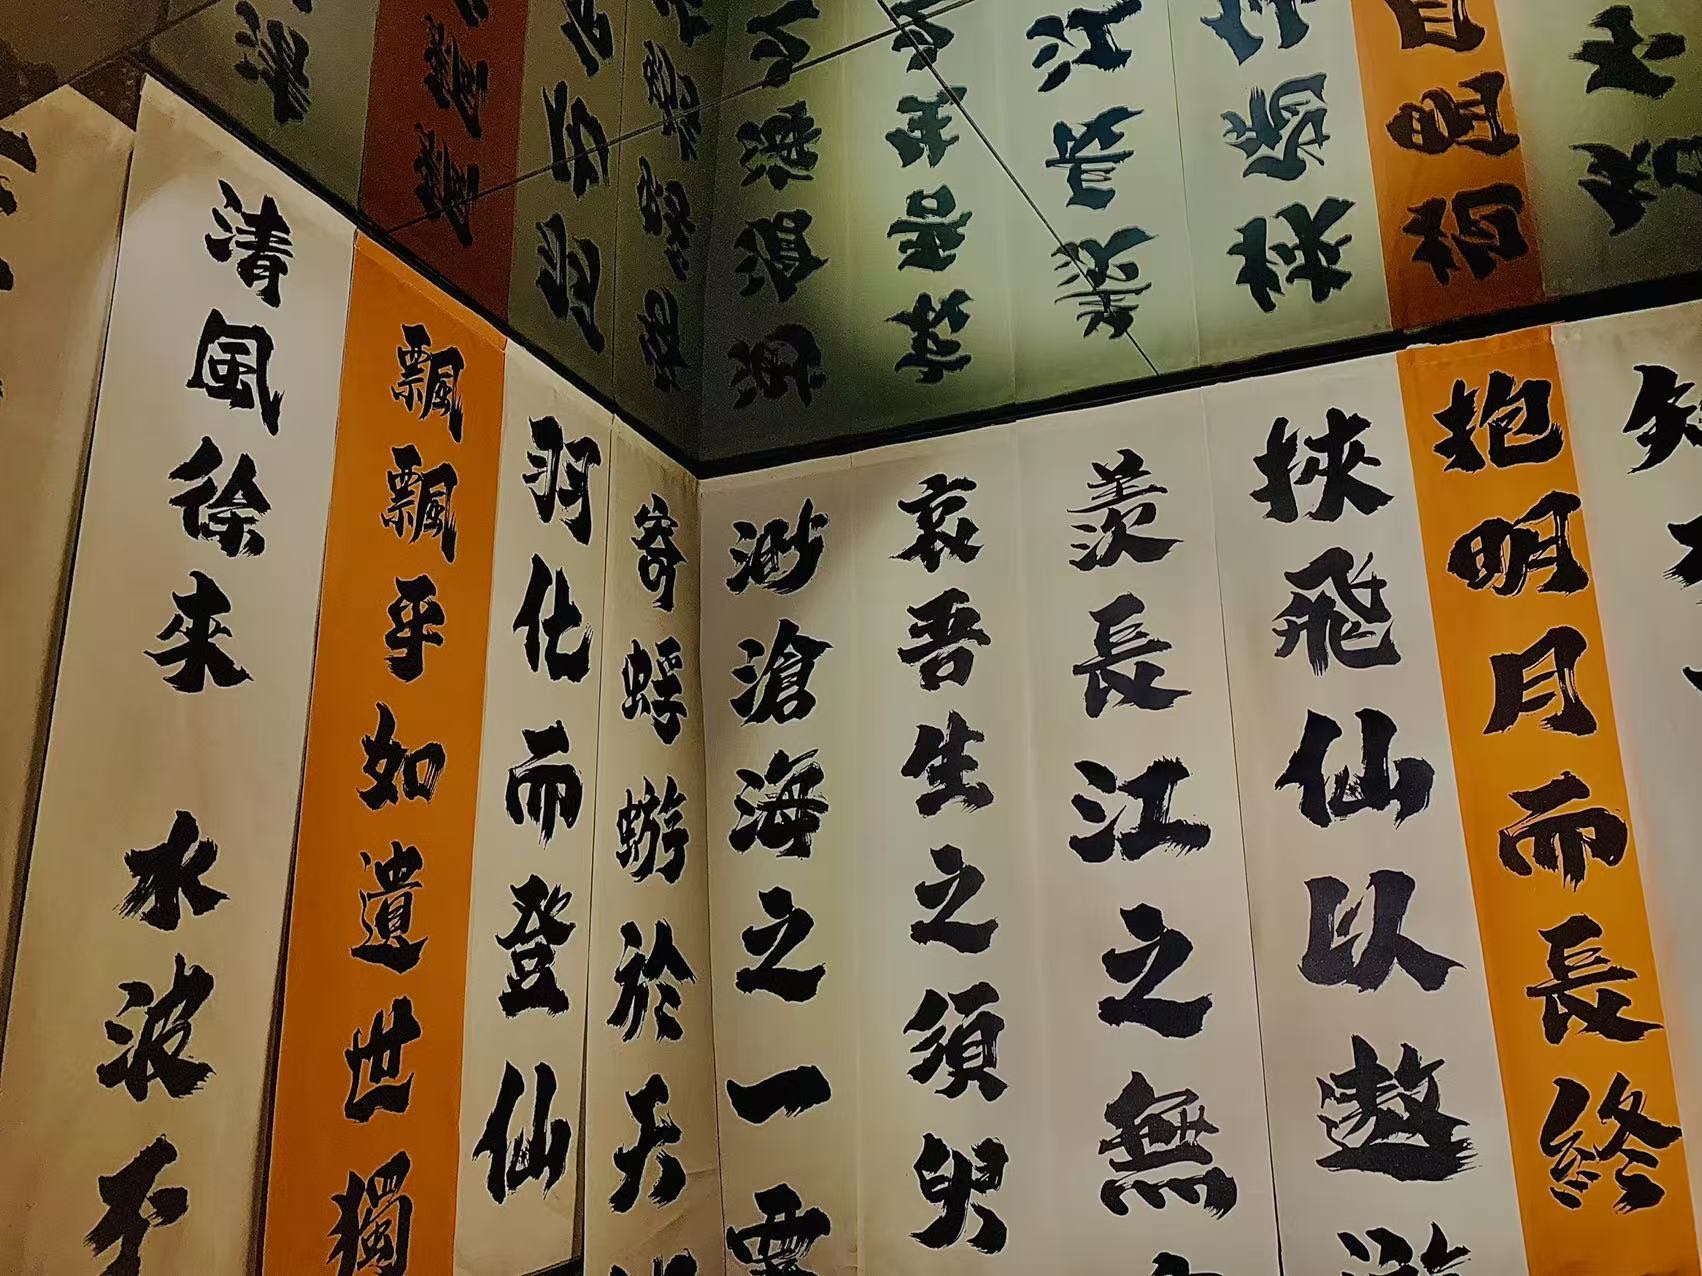 清風徐來 水波不
飄飄乎如遺世獨
羽化而登仙
寄蜉蝣於天
渺滄海之一粟
哀吾生之須臾
羨長江之無
挾飛仙以遨遊
抱明月而長終